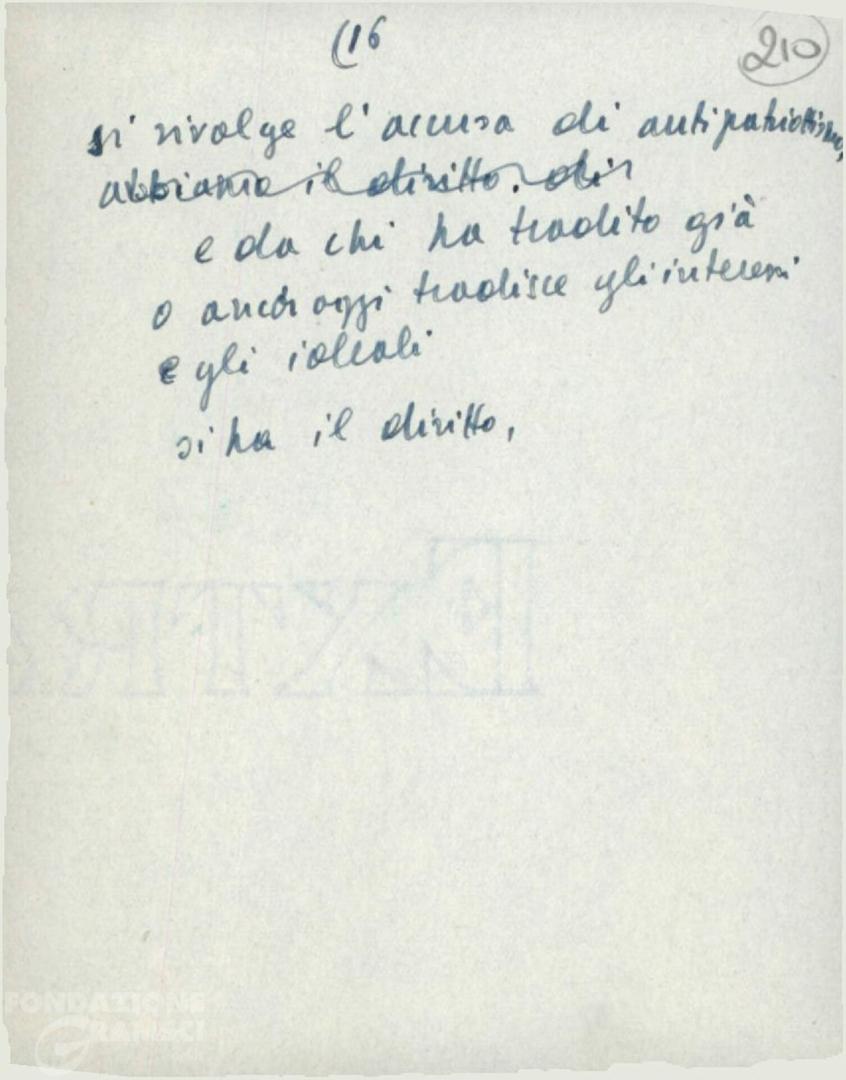 (16
210
si rivolge l'accusa di antipatriottismo,
abbiamo il diritto. di
e da chi ha tradito già
o ancor oggi tradisce gli interessi
e gli ideali
si ha il diritto,
EXTRA
FONDAZIONE
GRAMSCI